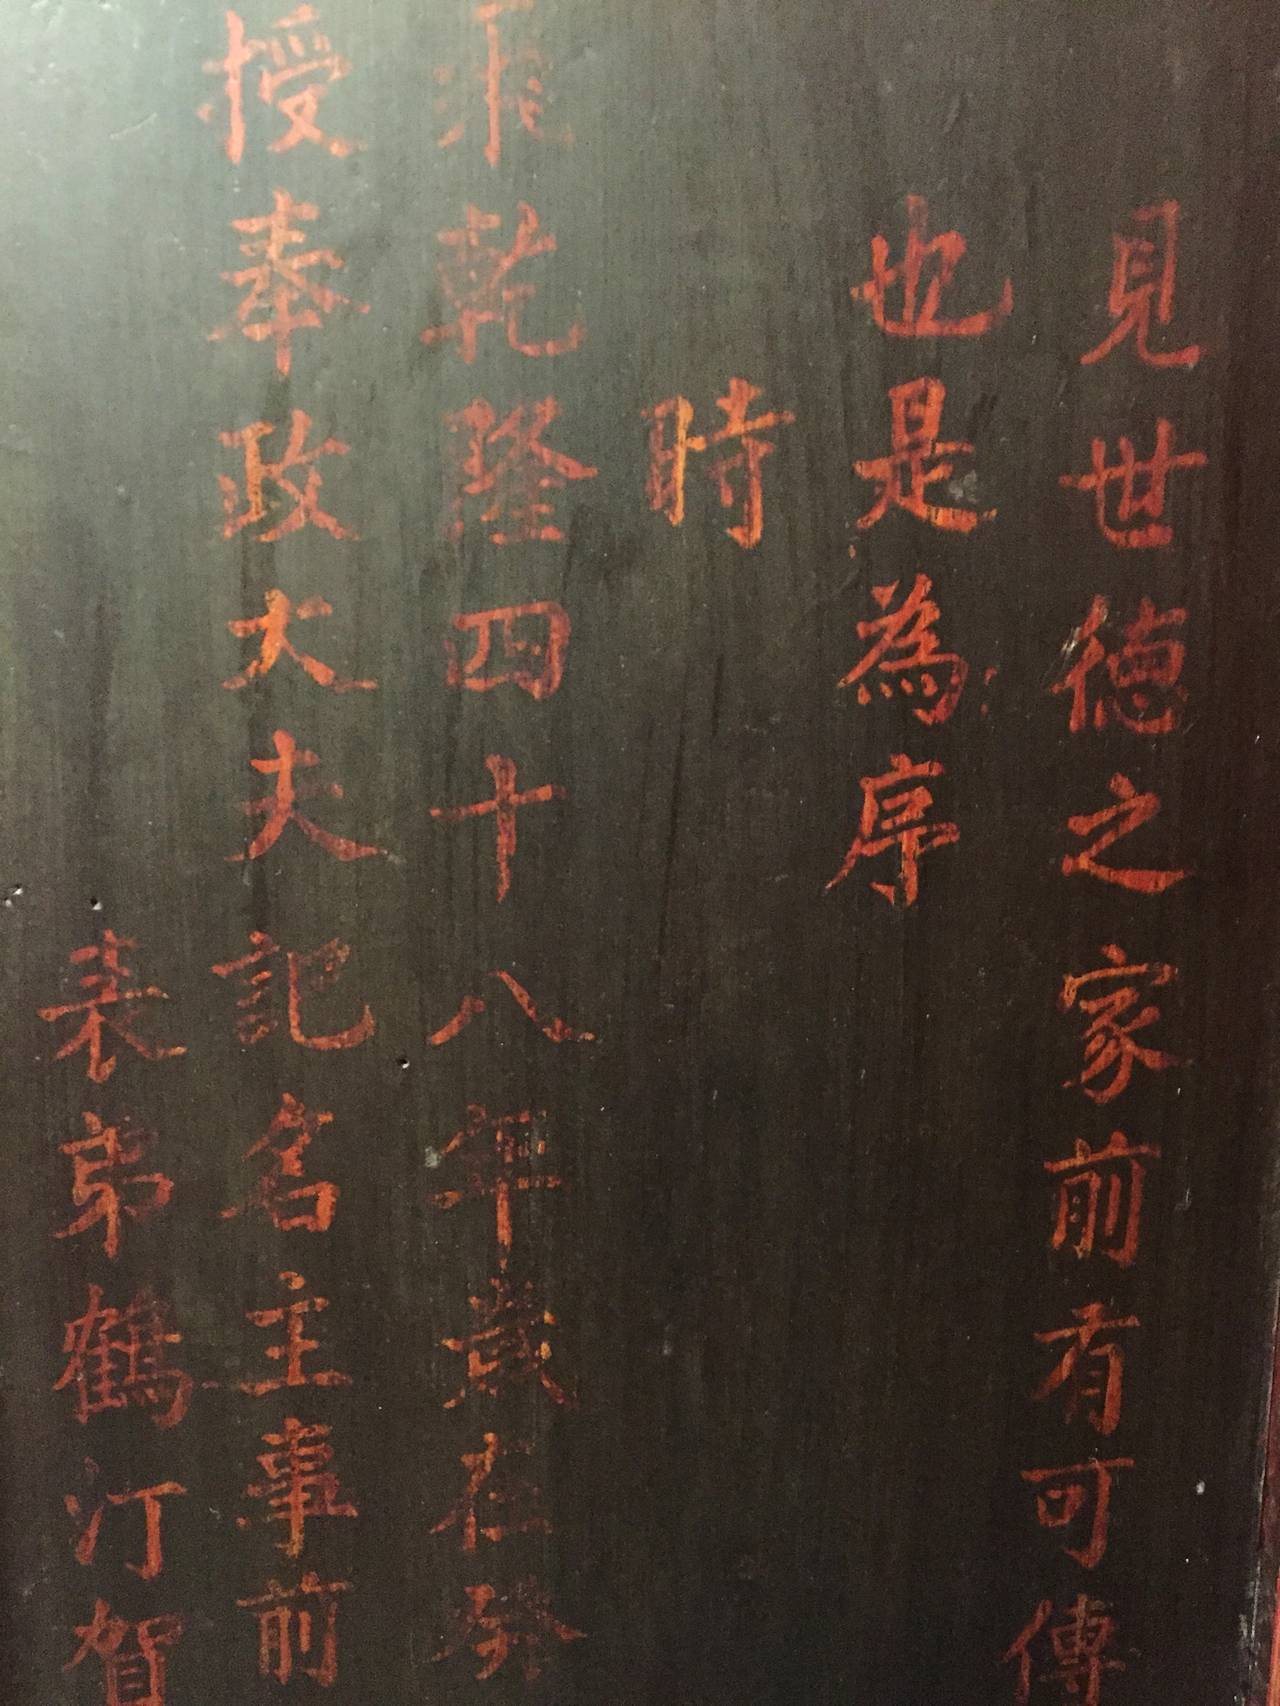 見世德之家前有可傳
也是為序
時
飛乾隆四十八年歲在癸
授奉政大夫記名主事前
表弟鶴汀賀